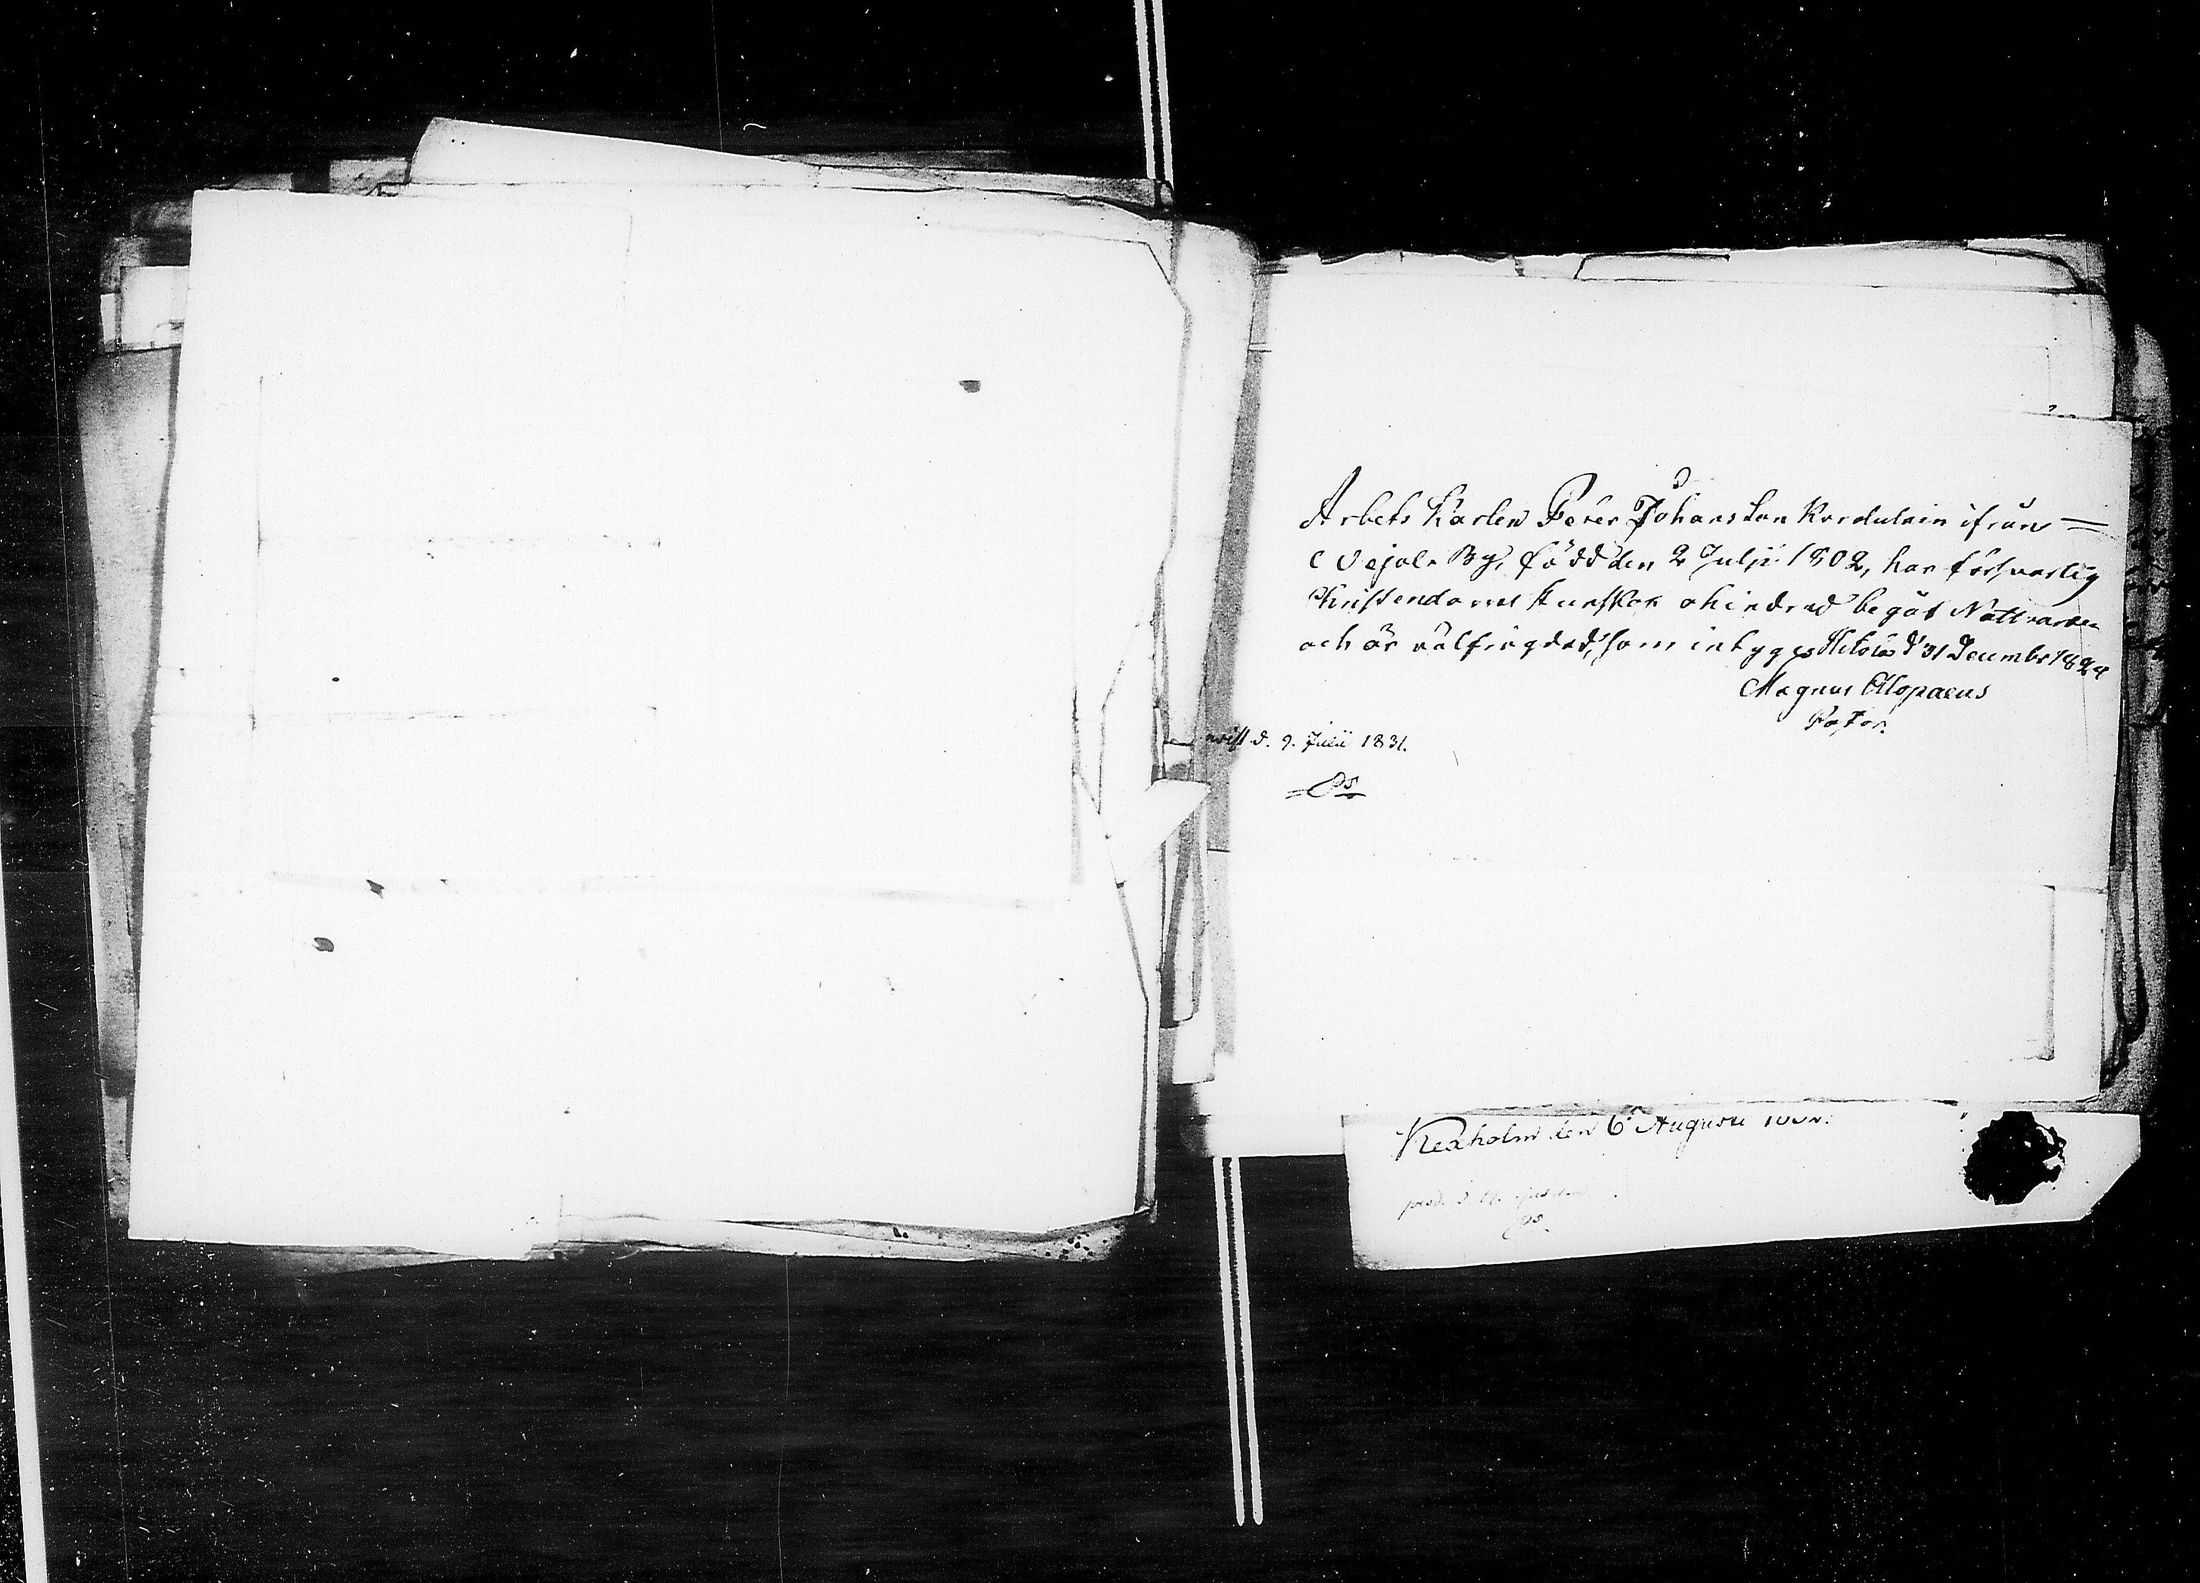 Arbets Karlen Peter Johansson Kardulain ifrån
Wejala By, född den 2 Julji 1802, har försvarlig
Christendoms kunskap ohindrad begåt Nattvarden
och är välfrägdad, som intygas Hitola d 31 Decembr 1828
Magnus Alopaeus
Pastor.
d. 9. Julii 1831.
Kexholm den 6 Augusti
prod. d.